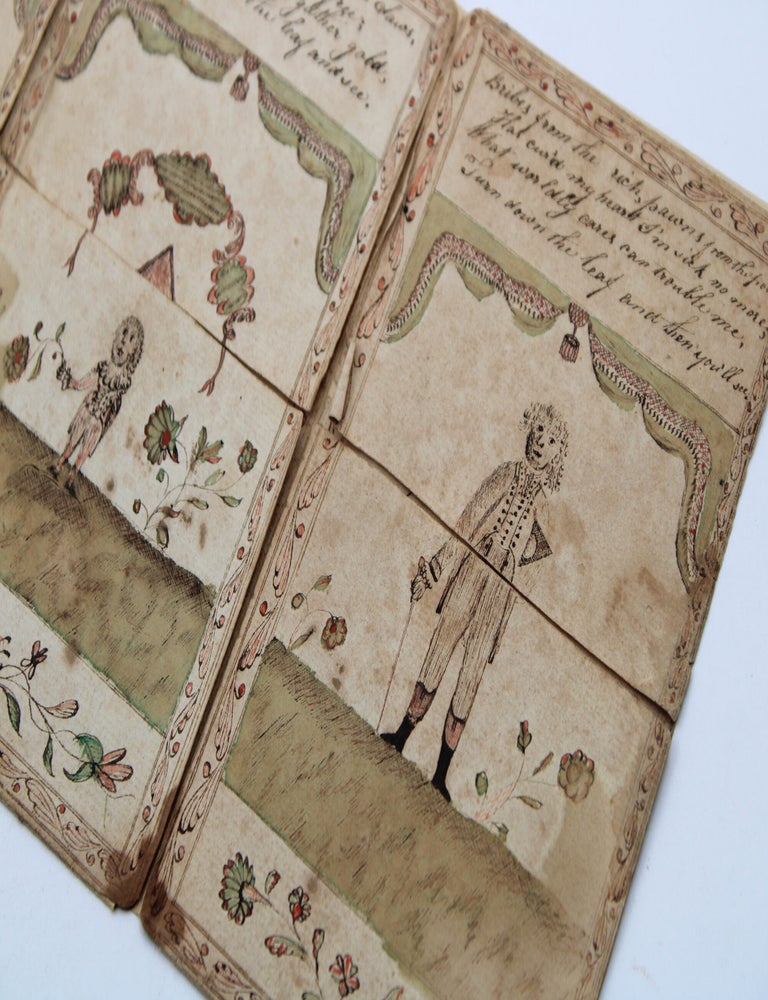 gather gold,
the leaf and see.
Bribes from the rich, pawns from the poor
That cur'd my heart I'm sick no more,
What worldly cares can trouble me,
Turn down the leaf and then you'll see.